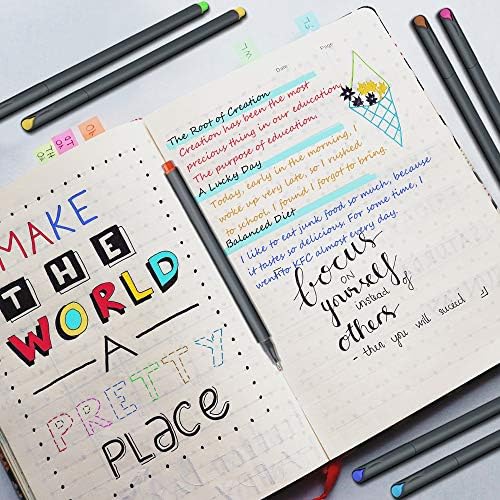 MAKE
THE
WORLD
A
PRETTY
PLACE
Date
Page
The Root of Creation
Creation has been the most
precious thing in our education.
The purpose of education.
A Lucky Day
Today, early in the morning, I
woke up very late, so I rushed
to school, I found I forgot to bring.
Balanced Diet
I like to eat junk food so much, because
it tastes so delicious. For some time, I
went to KFC almost every day.
focus
ON
yourself
instead of
others
then you will succeed